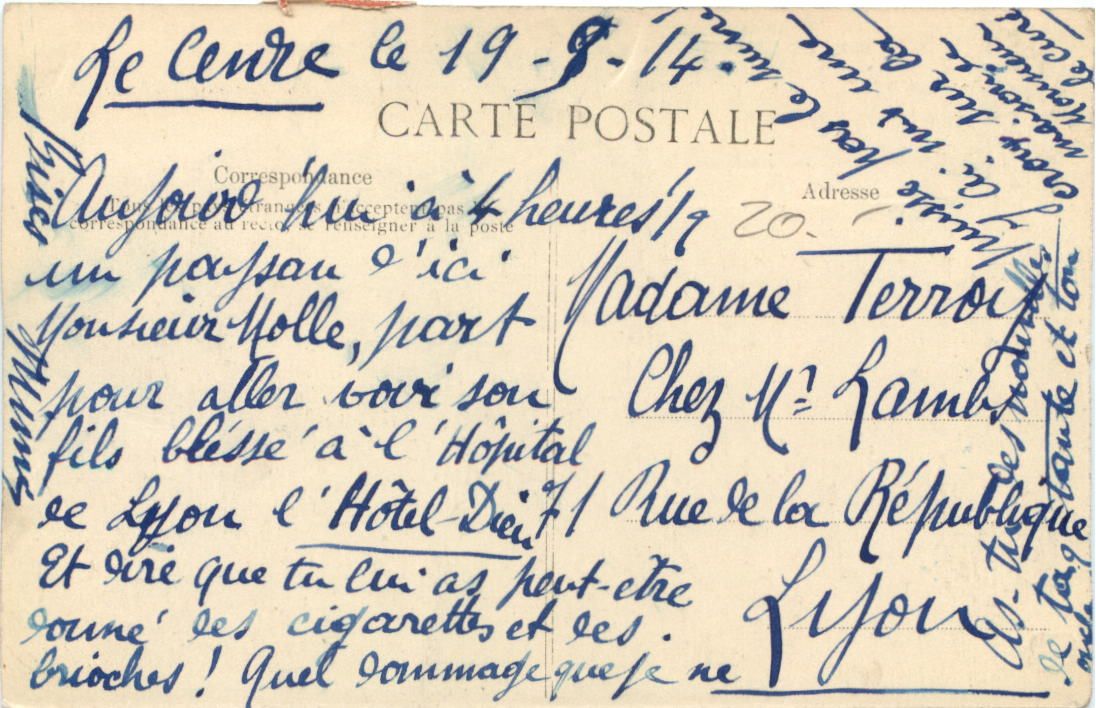 Le Cendre le 19-8-14.
CARTE POSTALE
Correspondance
Tous les pays étrangers n'acceptent pas la
correspondance au recto, se renseigner à la poste
Adresse
20.-
Aujourd'hui à 4 heures 1/2
un paysan d'ici
Monsieur Molle, part
pour aller voir son
fils bléssé à l'Hôpital
de Lyon l'Hôtel-Dieu
Et dire que tu lui as peut-être
donné des cigarettes et des
brioches! Quel dommage que je ne
puisse pas le suivre!
Madame Terroir
Chez Mr Lambs
71 Rue de la République
Lyon
Il y a ici une
croix sur la
maison de
Monsieur
le curé
As-tu des nouvelles
de ta tante et ton
oncle
Bises